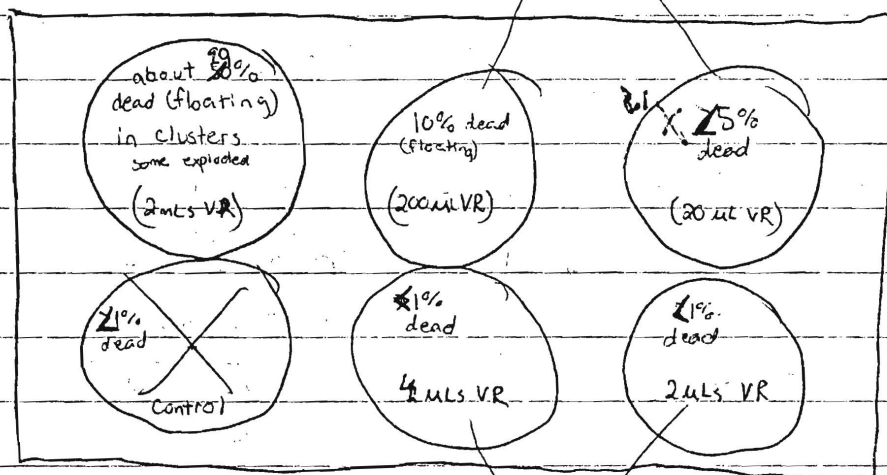 about 90%
dead (floating)
in clusters
some exploded
(2mLs VR)
10% dead
(floating)
(200µL VR)
<5%
dead
(20 µL VR)
<1%
dead
Control
<1%
dead
µLs VR
<1%
dead
2µLs VR